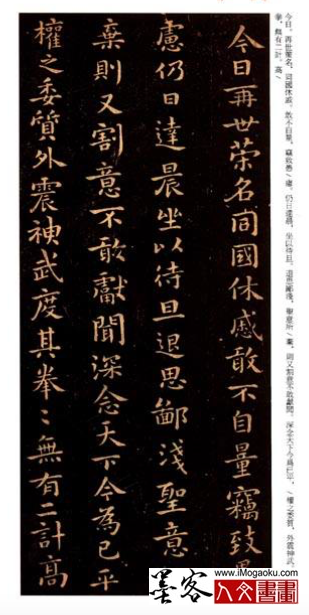 今日再世榮名同國休慼敢不自量竊致愚
慮仍日達晨坐以待旦退思鄙淺聖意所
棄則又割意不敢獻聞深念天下今為已平
權之委質外震神武度其拳〻無有二計高
今日，再世榮名，同國休慼，敢不自量，竊致愚/慮，仍日達晨，坐以待旦，退思鄙淺，聖意所/棄，則又割意不敢獻聞，深念天下今為已平，/權之委質，外震神武，
拳，無有二計，高/
墨客
人文書畫
www.iMogaoku.com